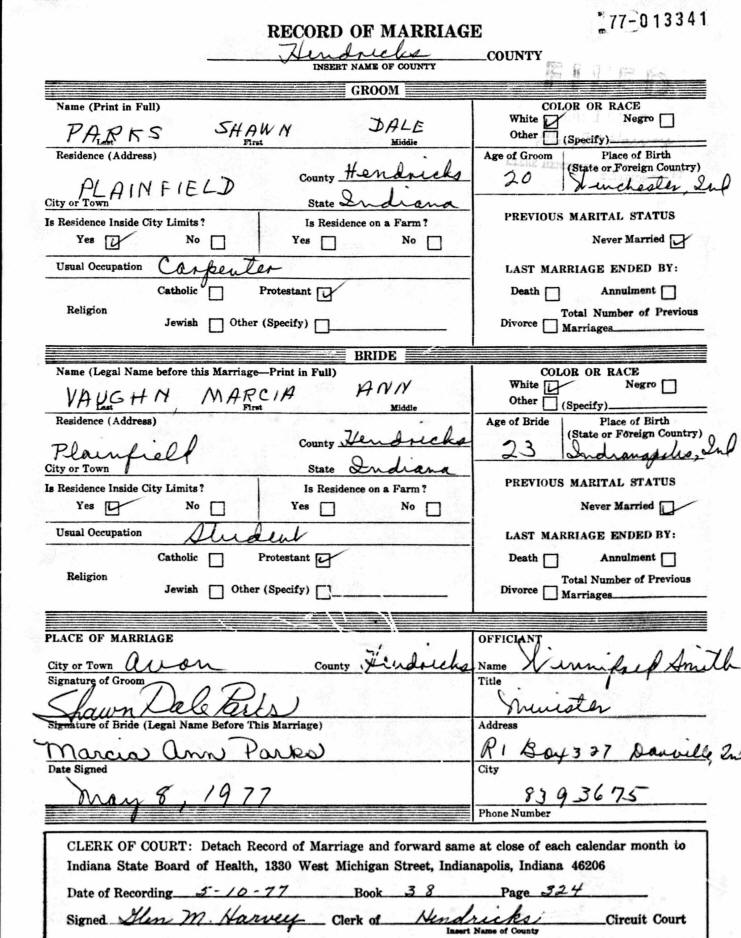 77-013341
RECORD OF MARRIAGE
Hendricks COUNTY
INSERT NAME OF COUNTY
GROOM
Name (Print in Full)
PARKS SHAWN DALE
Last First Middle
COLOR OR RACE
White Negro
Other (Specify)
Residence (Address)
PLAINFIELD County Hendricks
City or Town State Indiana
Age of Groom Place of Birth
(State or Foreign Country)
20 Winchester, Ind
Is Residence Inside City Limits? Is Residence on a Farm?
Yes No Yes No
PREVIOUS MARITAL STATUS
Never Married
Usual Occupation Carpenter
LAST MARRIAGE ENDED BY:
Religion Catholic Protestant
Jewish Other (Specify)
Death Annulment
Total Number of Previous
Divorce Marriages
BRIDE
Name (Legal Name before this Marriage—Print in Full)
VAUGHN, MARCIA ANN
Last First Middle
COLOR OR RACE
White Negro
Other (Specify)
Residence (Address)
Plainfield County Hendricks
City or Town State Indiana
Age of Bride Place of Birth
(State or Foreign Country)
23 Indianapolis, Ind
Is Residence Inside City Limits? Is Residence on a Farm?
Yes No Yes No
PREVIOUS MARITAL STATUS
Never Married
Usual Occupation Student
LAST MARRIAGE ENDED BY:
Religion Catholic Protestant
Jewish Other (Specify)
Death Annulment
Total Number of Previous
Divorce Marriages
PLACE OF MARRIAGE
City or Town Avon County Hendricks
Signature of Groom
Shawn Dale Parks
Signature of Bride (Legal Name Before This Marriage)
Marcia Ann Parks
Date Signed
May 8, 1977
OFFICIANT
Name Winnifred Smith
Title
Minister
Address
R1 Box 327 Danville, In
City
8393675
Phone Number
CLERK OF COURT: Detach Record of Marriage and forward same at close of each calendar month to
Indiana State Board of Health, 1330 West Michigan Street, Indianapolis, Indiana 46206
Date of Recording 5-10-77 Book 38 Page 324
Signed Glen M. Harvey Clerk of Hendricks Circuit Court
Insert Name of County